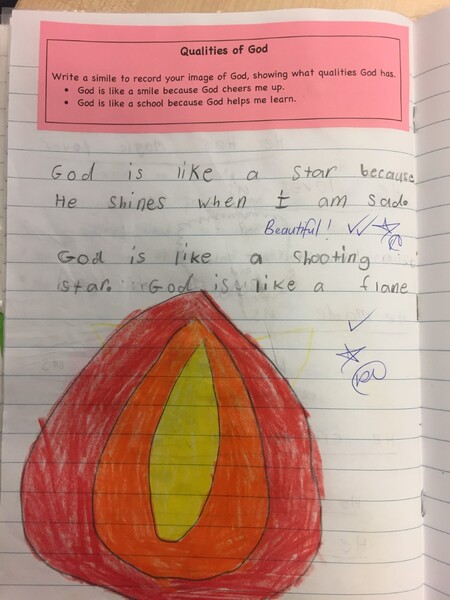 Qualities of God
Write a simile to record your image of God, showing what qualities God has.
• God is like a smile because God cheers me up.
• God is like a school because God helps me learn.
God is like a star because
He shines when I am sad.
Beautiful!
God is like a shooting
star. God is like a flane